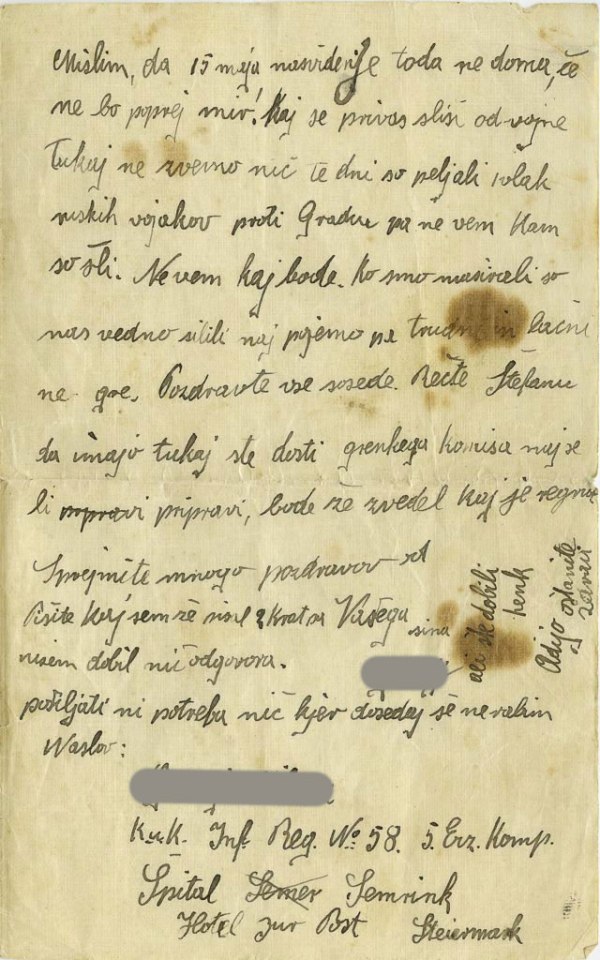 Mislim, da 15 maja nasvidenje toda ne doma, če
ne bo poprej mir! Kaj se privas sliši od vojne
tukaj ne zvemo nič te dni so peljali 1 vlak
ruskih vojakov proti Gradcu pa ne vem kam
so šli. Ne vem kaj bode. Ko smo maširali so
nas vedno silili naj pojemo pa trudni in lačni
ne gre. Pozdravte vse sosede. Rečte Štefanu
da imajo tukaj še dosti grenkega komisa naj se
li pripravi, bode že zvedel kaj je
Sprejmite mnogo pozdravov od
Pišite kaj sem že pisal 2 krat pa Vašega sina
nisem dobil nič odgovora.
pošiljati ni potreba nič kjer dosedaj še ne rabim
Naslov:
K.u.K. Inf. Reg. No: 58. 5. Erz. Komp.
Špital Semer Semrink
Hotel zur Post Steiermark
ali ste dobili
Adijo ostanite
zdravi